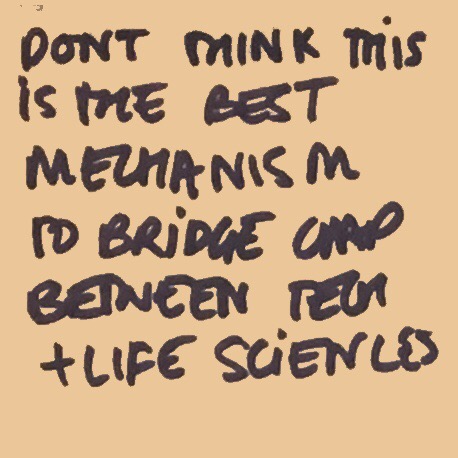 DONT THINK THiS
iS THE BEST
MECHANISM
TO BRiDGE GAP
BETWEEN TECH
+LIFE SCiENCES